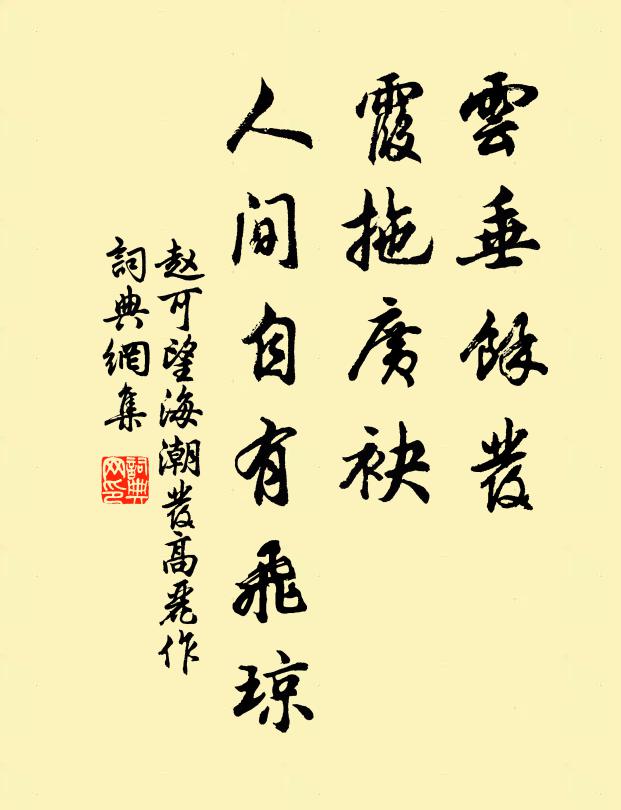 雲垂餘發
霞拖廣袂
人间自有飛瓊
赵可望海潮發高麗作
詞典網集
詞典网印